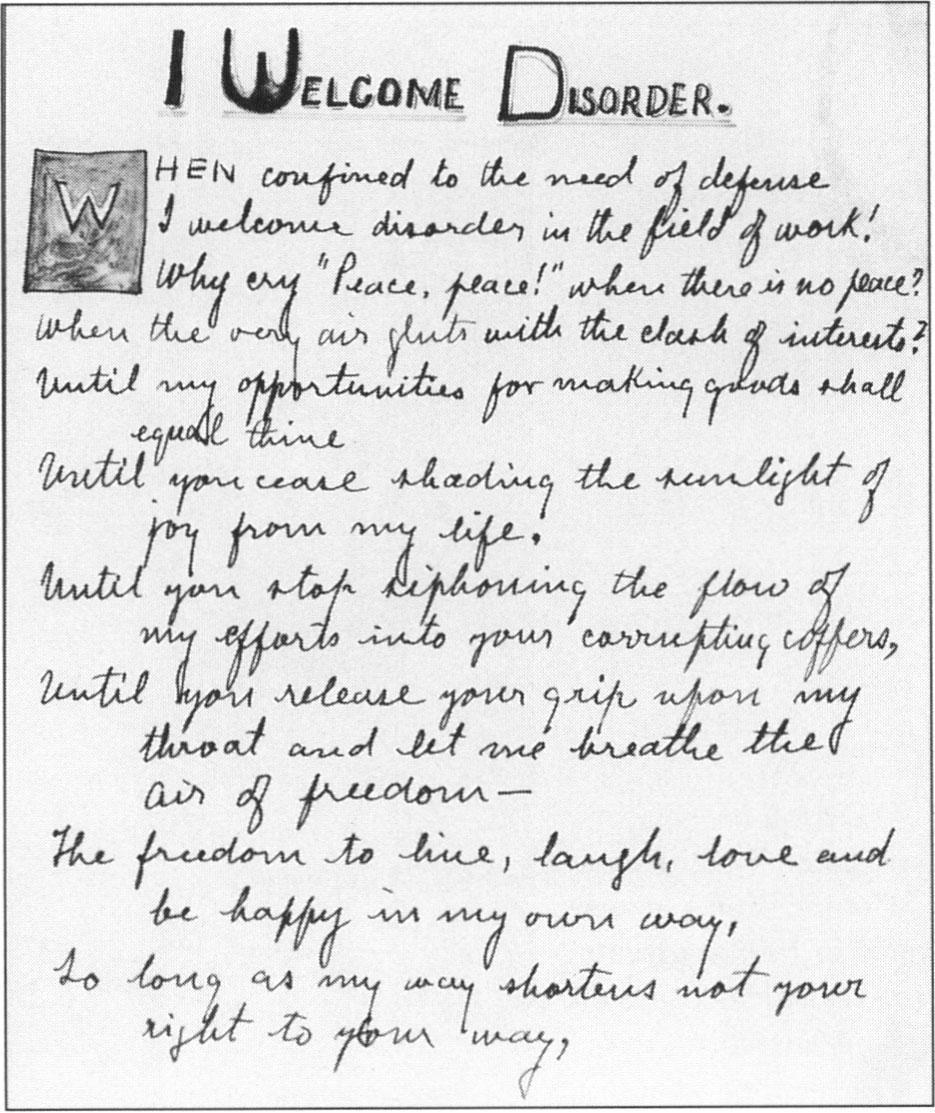 I WELCOME DISORDER.
WHEN confined to the need of defense
I welcome disorder in the field of work!
Why cry "Peace, peace!" when there is no peace?
When the very air gluts with the clash of interests?
Until my opportunities for making goods shall
equal thine
Until you cease shading the sunlight of
joy from my life.
Until you stop siphoning the flow of
my efforts into your corrupting coffers,
Until you release your grip upon my
throat and let me breathe the
air of freedom—
The freedom to live, laugh, love and
be happy in my own way,
So long as my way shortens not your
right to your way,